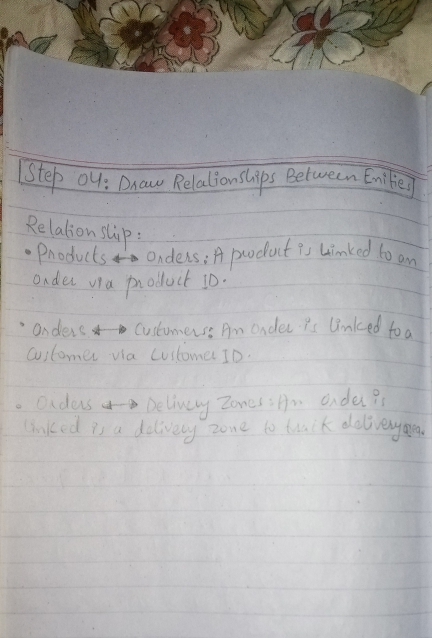 Step 04: Draw Relationships Between Enities
Relationship:
• Products ↔ Orders: A product is linked to an
order via product ID.
• Orders ↔ Customers: An Order is linked to a
Customer via Customer ID.
• Orders ↔ Delivery Zones: An order is
linked is a delivery zone to track delivery area.